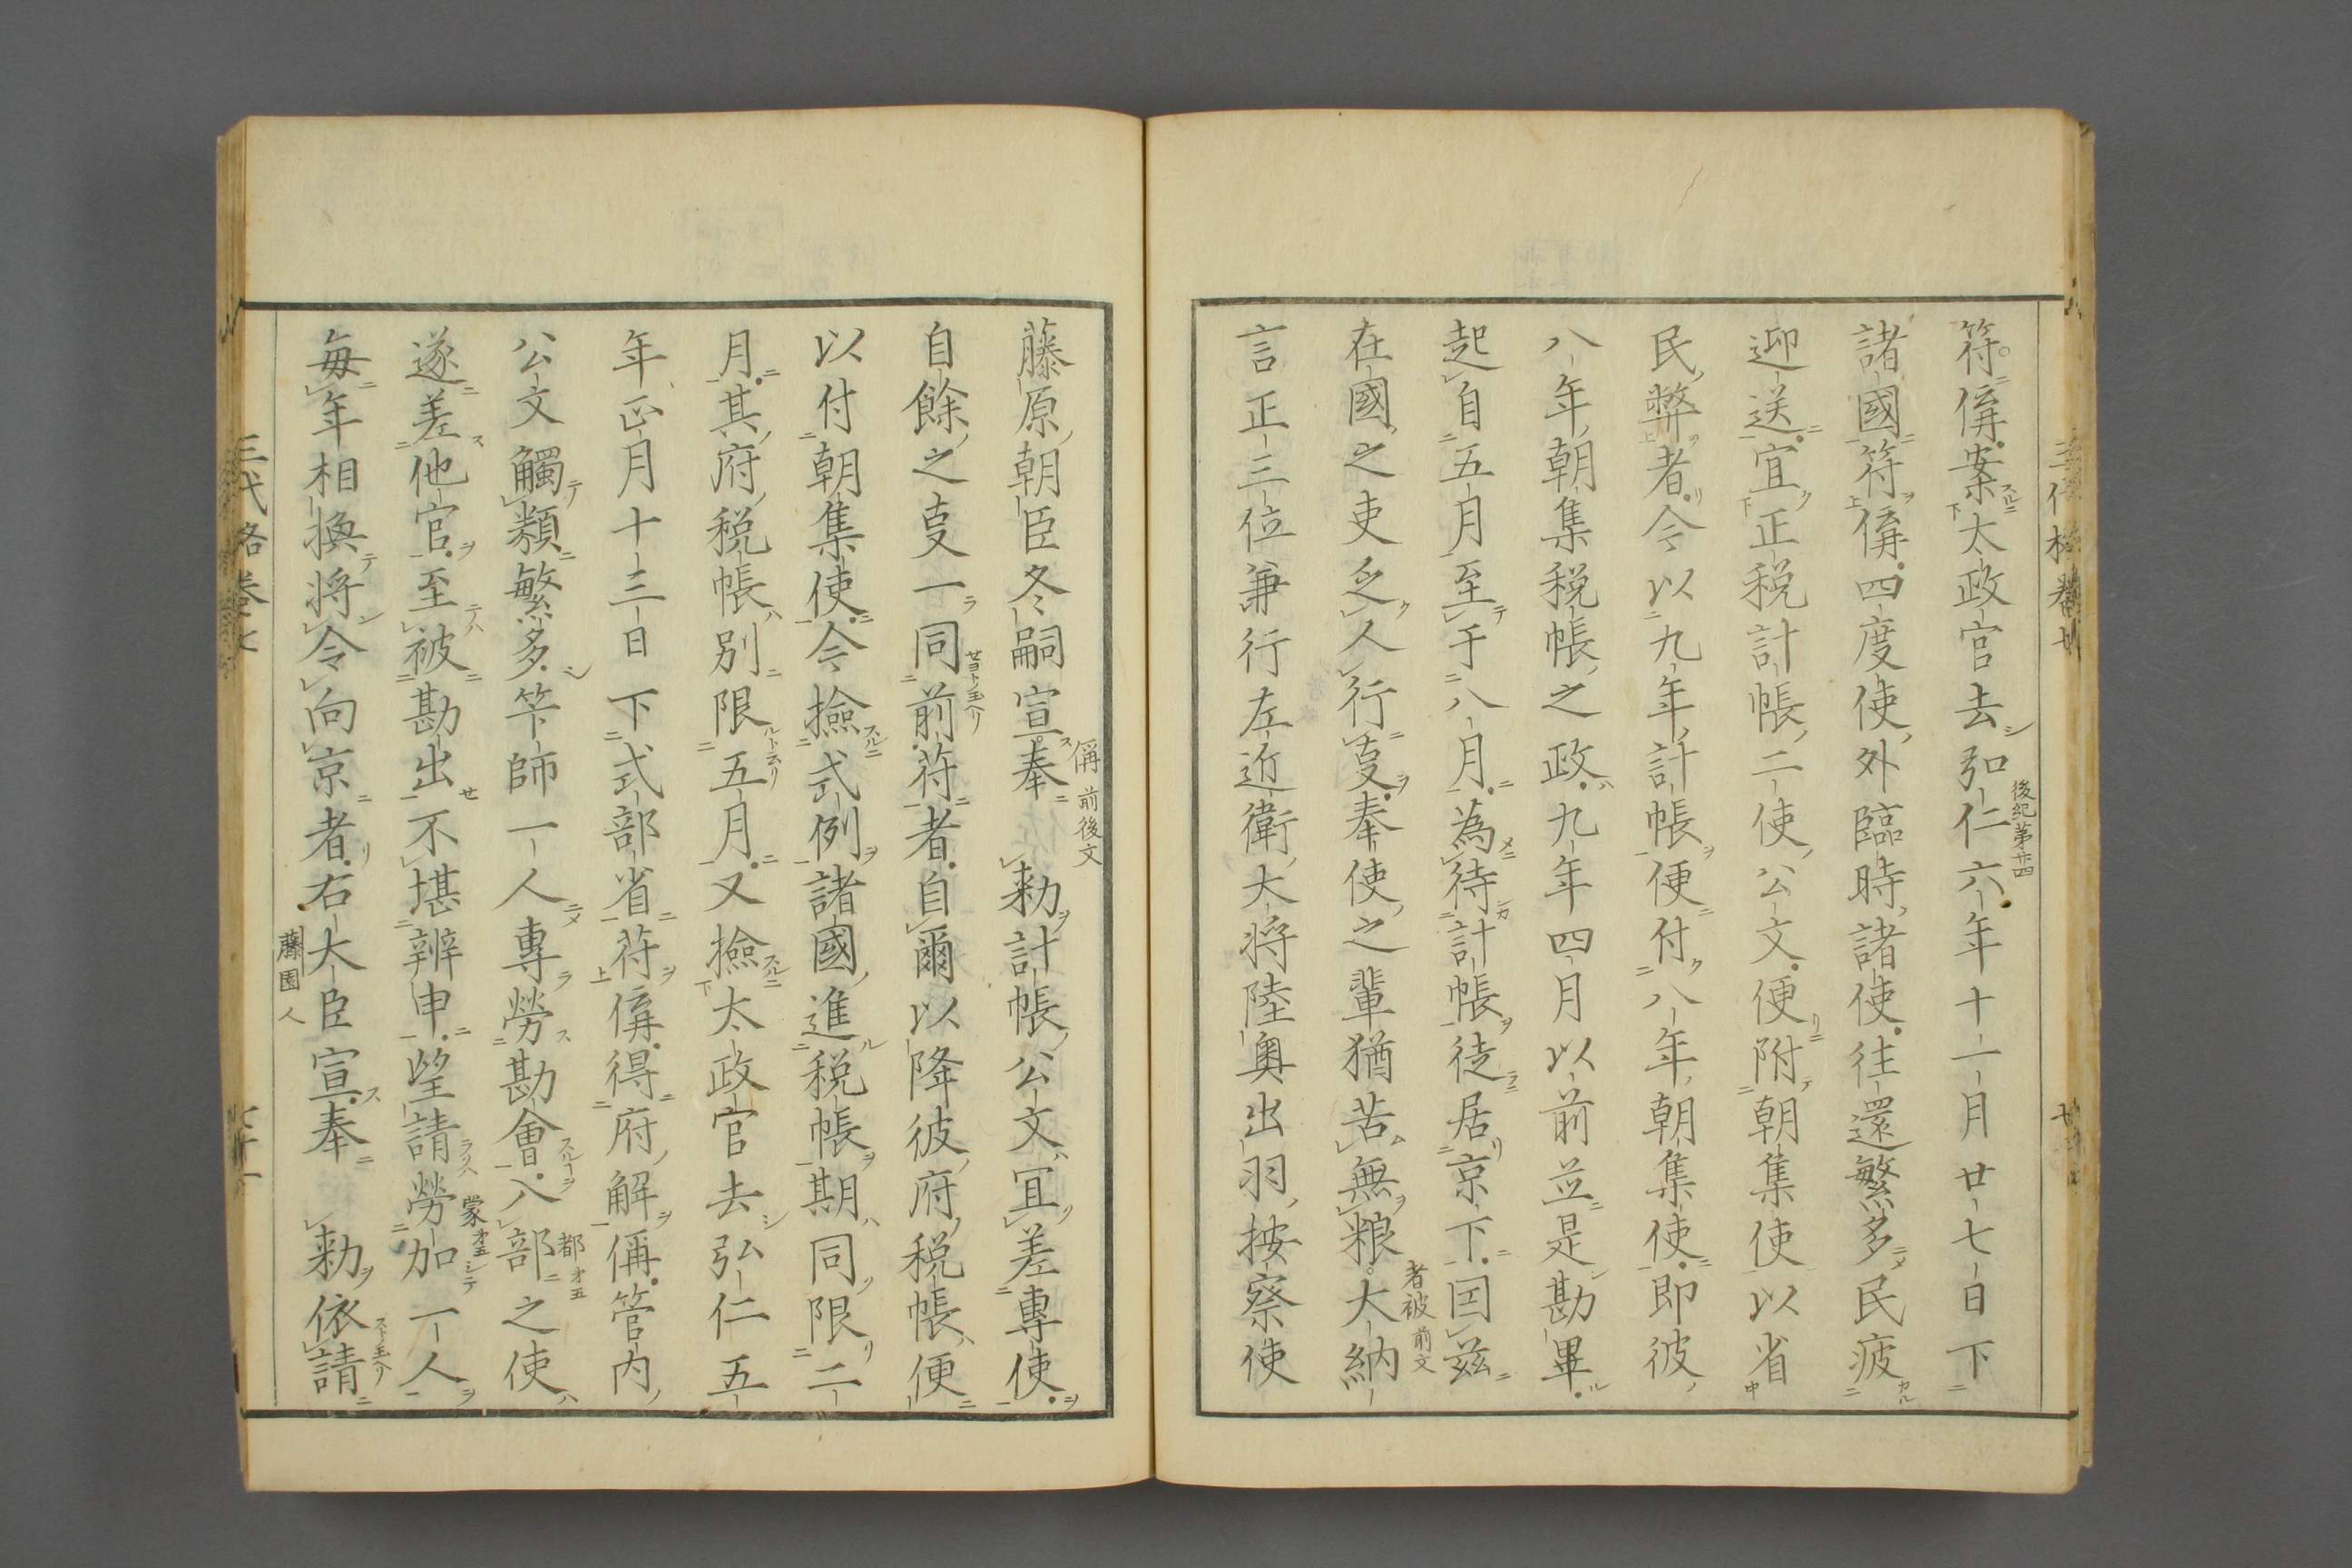 符偁案太政官去弘仁六年十一月廿七日下
後紀第廿四
諸國符偁四度使外臨時諸使往還繁多民疲
迎送宜正税計帳二使公文便附朝集使以省
民弊者令以九年計帳便付八年朝集使即彼
八年朝集税帳之政九年四月以前並是勘畢
起自五月至于八月為待計帳徒居京下因茲
在國之吏乏人行㕝奉使之輩猶苦無粮大納
者被前文
言正三位兼行左近衛大将陸奥出羽按察使
藤原朝臣冬嗣宣奉　勅計帳公文冝差專使
偁前後文
自餘之㕝一同前符者自爾以降彼府税帳便
以付朝集使今撿式例諸國進税帳期同限二
月其府税帳別限五月又撿太政官去弘仁五
年正月十三日下式部省符偁得府解偁管内
公文觸類繁多筭師一人專勞勘會入部之使
都オ五
遂差他官至被勘出不堪辨申望請勞加一人
蒙オ五
毎年相換将令向京者右大臣宣奉　勅依請
藤園人
三代格卷七